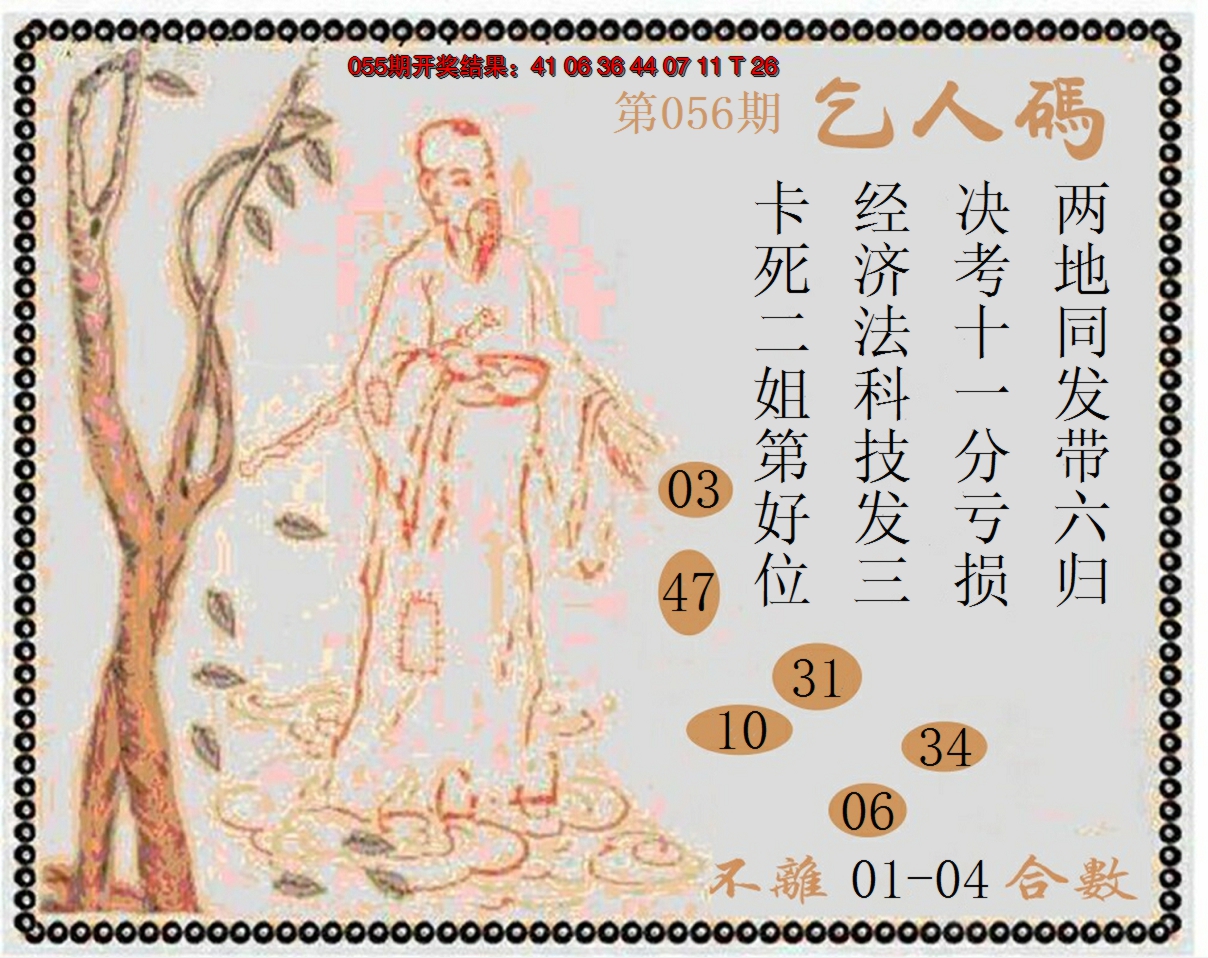 055期开奖结果：41 06 36 44 07 11 T 26
第056期 乞人碼
两地同发带六归
决考十一分亏损
经济法科技发三
卡死二姐第好位
03
47
31
10
34
06
不離 01-04 合數